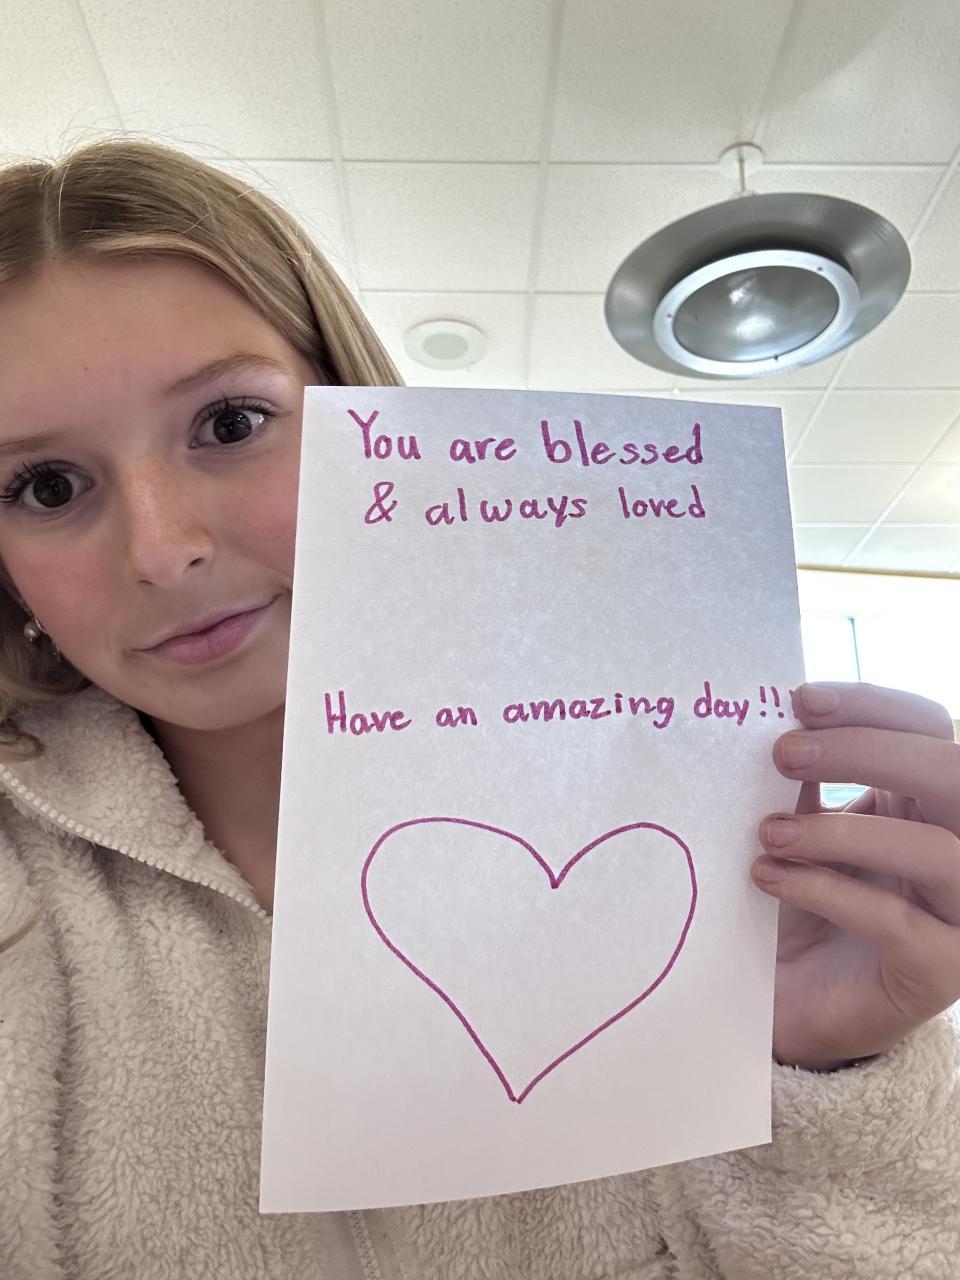 You are blessed
& always loved
Have an amazing day!!!